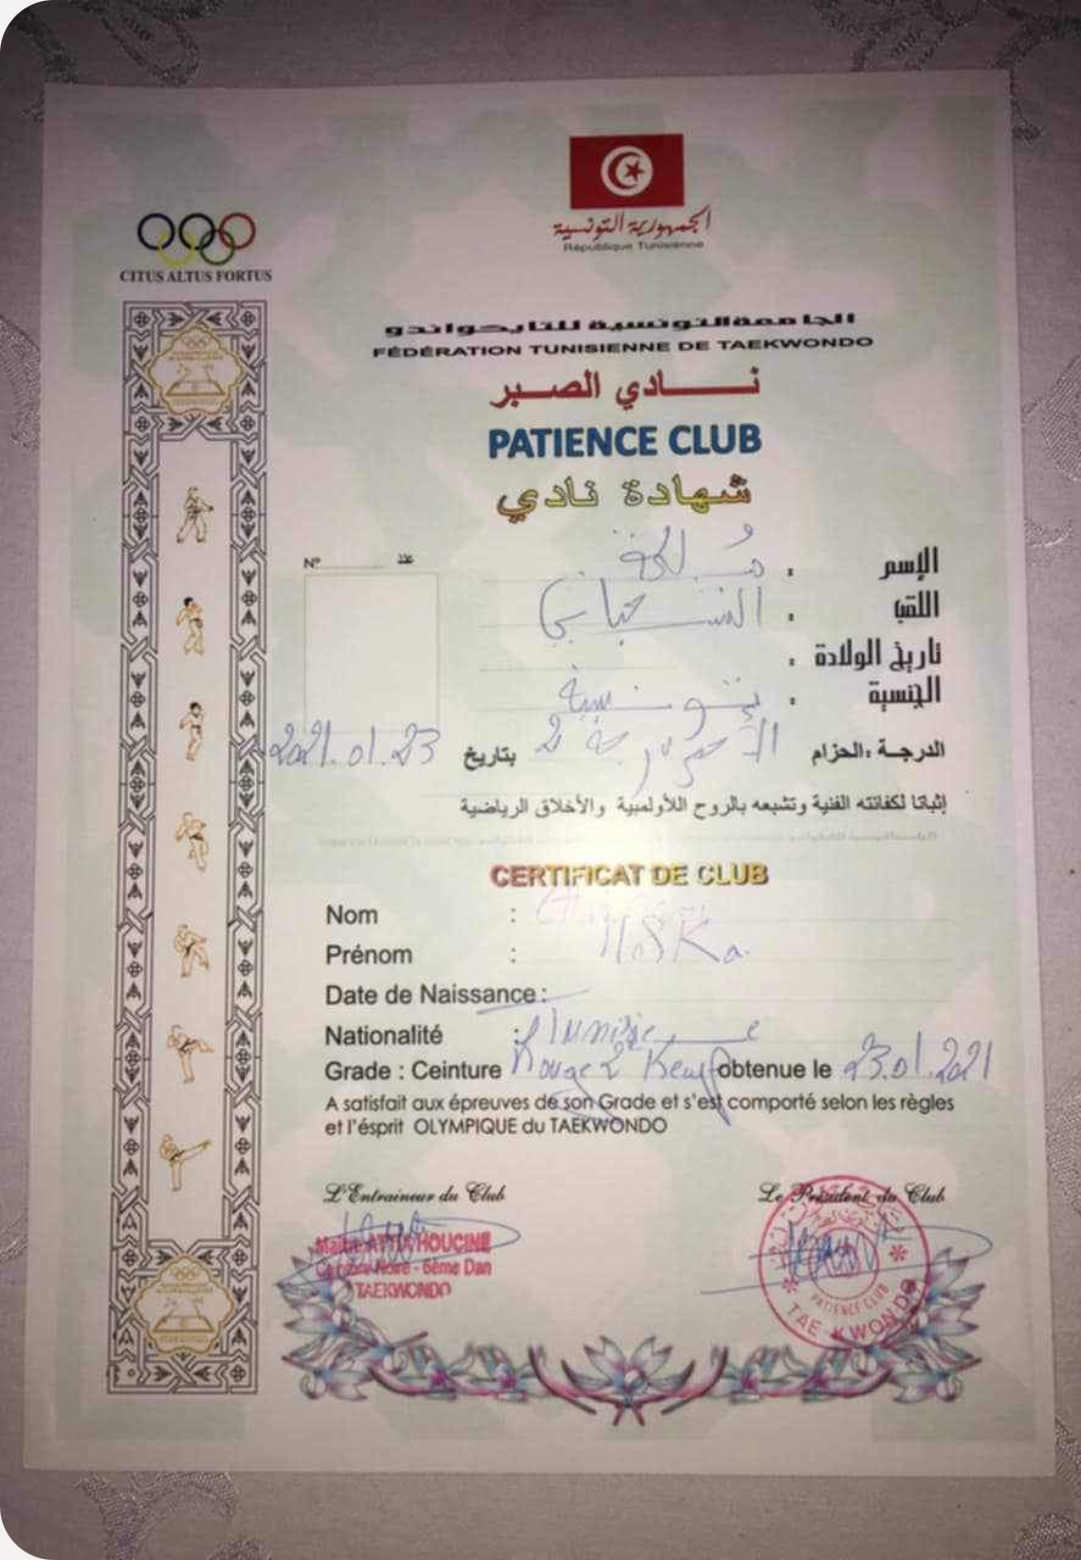 الجمهورية التونسية
République Tunisienne
CITUS ALTUS FORTUS
الجامعة التونسية للتايكواندو
FÉDÉRATION TUNISIENNE DE TAEKWONDO
نادي الصبر
PATIENCE CLUB
شهادة نادي
N° عدد
الإسم :
اللقب :
تاريخ الولادة :
الجنسية : تونسية
الدرجة :الحزام الأحمر درجة 2 بتاريخ 2021.01.23
إثباتا لكفائته الفنية وتشبعه بالروح اللأولمبية والأخلاق الرياضية
CERTIFICAT DE CLUB
Nom :
Prénom :
Date de Naissance :
Nationalité : Tunisie
Grade : Ceinture Rouge 2 Keup obtenue le 23.01.2021
A satisfait aux épreuves de son Grade et s'est comporté selon les règles
et l'ésprit OLYMPIQUE du TAEKWONDO
L'Entraineur du Club Le Président du Club
Maitre ATTIA HOUCINE
Ceinture Noire - 6ème Dan
TAEKWONDO
PATIENCE CLUB
TAE KWON DO